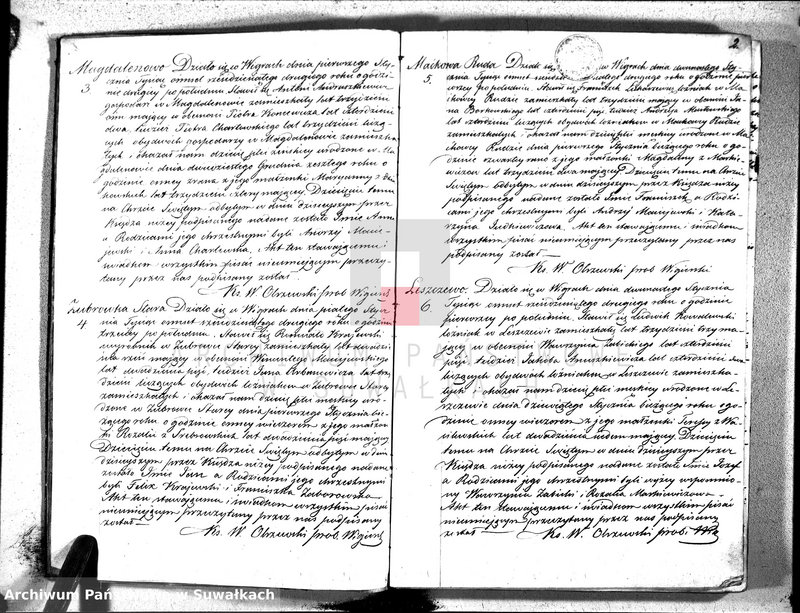 2
Magdalenowo Działo się w Wigrach dnia pierwszego Sty-
3
cznia Tysiąc ośmset sześdziesiątego drugiego roku o godzi-
nie drugiey po południu Stawił się Antoni Andruszkiewicz
gospodarz w Magdalenowie zamieszkały lat trzydzieści
mający w obecności Piotra
dwa tudzież Piotra Charlewskiego lat trzydzieści liczą-
cych obydwóch gospodarzy w Magdalenowie zamieszka-
łych i okazał nam dziecię płci żeńskiey urodzone w Ma-
gdalenowie dnia dwudziestego Grudnia zeszłego roku o
godzinie ósmey zrana z jego małżonki Maryanny z
lat trzydzieści cztery mającey. Dziecięciu temu
na Chrzcie Świętym odbytym w dniu dzisieyszym przez
Księdza niżey podpisanego nadane zostało Imie Anna
a Rodzicami jego chrzestnymi byli Andrzy Macie-
jewski i Anna Charlewska. Akt ten stawającemu i
świadkom wszystkim pisać nieumiejącym przeczy-
tany przez nas podpisany został
Ks. W Olszewski prob Wigierski
Żubrówka Stara Działo się w Wigrach dnia piątego Stycz-
4
nia Tysiąc ośmset sześdziesiątego drugiego roku o godzinie
po południu. Stawił się Romuald Krajewski
wyrobnik w Żubrowce Starey zamieszkały lat
mający w obecności Wincentego Maciejewskiego
lat dwadzieścia pięć tudzież Jana Urbanowicza lat trzy-
dzieści liczących obydwóch leśników w Żubrowce Starey
zamieszkałych i okazał nam dziecię płci męskiey uro-
dzone w Żubrowce Starey dnia pierwszego Stycznia bie-
żącego roku o godzinie ósmey wieczorem z jego małżon-
ki Rozalii z lat dwadzieścia pięć mającey
Dziecięciu temu na Chrzcie Świętym odbytym w dniu
dzisieyszym przez Księdza niżey podpisanego nadane
zostało Imie Jan a Rodzicami jego chrzestnymi
byli Felix Krajewski i Franciszka Zaborowska
Akt ten stawającemu i świadkom wszystkim pisać
nieumiejącym przeczytany przez nas podpisany
został
Ks. W. Olszewski prob. Wigierski
Maćkowa Ruda Działo się w Wigrach dnia dwunastego Sty-
5.
cznia Tysiąc ośmset sześdziesiątego drugiego roku o godzinie pier-
wszey po południu Stawił się Franciszek leśniczy w Ma-
ćkowey Rudzie zamieszkały lat trzydzieści mający w obecności Ja-
na lat czterdzieści pięć tudzież Andrzeja
lat czterdzieści liczących obydwóch leśników w Maćkowey Rudzie
zamieszkałych i okazał nam dziecię płci męskiey urodzone w Ma-
ćkowey Rudzie dnia pierwszego Stycznia bieżącego roku o go-
dzinie czwartey rano z jego małżonki Magdaleny z Marki-
wiczów lat trzydzieści dwa mającey Dziecięciu temu na Chrzcie
Świętym odbytym w dniu dzisieyszym przez Księdza niżey
podpisanego nadane zostało Imie Franciszek a Rodzi-
cami jego chrzestnymi byli Andrzy Maciejewski i Kata-
rzyna Akt ten stawającemu i świadkom
wszystkim pisać nieumiejącym przeczytany przez nas
podpisany został
Ks. W Olszewski prob Wigierski
Leszczewo. Działo się w Wigrach dnia dwunastego Stycznia
6.
Tysiąc ośmset sześdziesiątego drugiego roku o godzinie
pierwszey po południu. Stawił się Ludwik Kowalewski
leśniczy w Leszczewie zamieszkały lat trzydzieści trzy ma-
jący w obecności Wawrzyńca Żabickiego lat czterdzieści
pięć tudzież Jakóba lat czterdzieści
liczących obydwóch leśników w Leszczewie zamieszka-
łych i okazał nam dziecię płci męskiey urodzone w Le-
szczewie dnia dziewiątego Stycznia bieżącego roku o go-
dzinie ósmey wieczorem z jego małżonki Teresy z
lat dwadzieścia siedm mającey Dziecięciu
temu na Chrzcie Świętym odbytym w dniu dzisieyszym przez
Księdza niżey podpisanego nadane zostało Imie Józef
a Rodzicami jego chrzestnymi byli wyżey wspomnio-
ny Wawrzyniec Żabicki i Rozalia Markiewiczowa.
Akt ten stawającemu i świadkom wszystkim pisać
nieumiejącym przeczytany przez nas podpisany
został
Ks. W. Olszewski prob. Wig
Archiwum Państwowe w Suwałkach